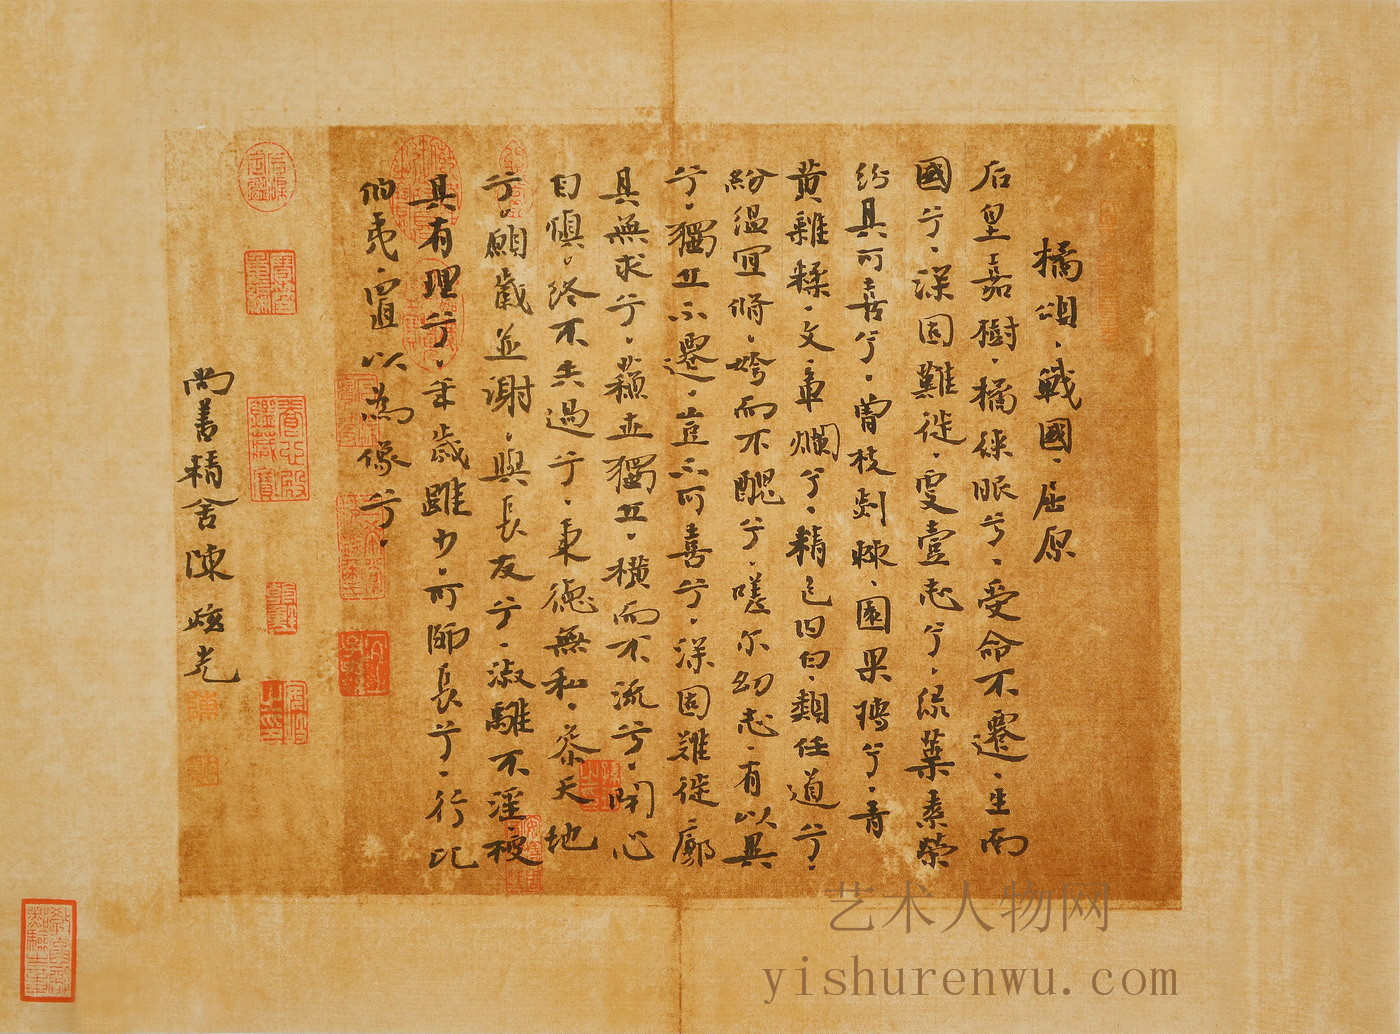 橘頌．戰國．屈原
后皇嘉樹．橘徠服兮．受命不遷．生南
國兮．深固難徙．更壹志兮．綠葉素榮
紛其可喜兮．曾枝剡棘．圓果摶兮．青
黄雜糅．文章爛兮．精色内白．類任道兮．
紛緼宜脩．姱而不醜兮．嗟尔幼志．有以異
兮．獨立不遷．豈不可喜兮．深固難徙．廓
其無求兮．蘇世獨立．橫而不流兮．閉心
自慎．終不失過兮．秉德無私．參天地
兮．願歲並謝．與長友兮．淑離不淫．梗
其有理兮．年歲雖少．可師長兮．行比
伯夷．置以為像兮．
尚善精舍陳炫光
艺术人物网
yishurenwu.com